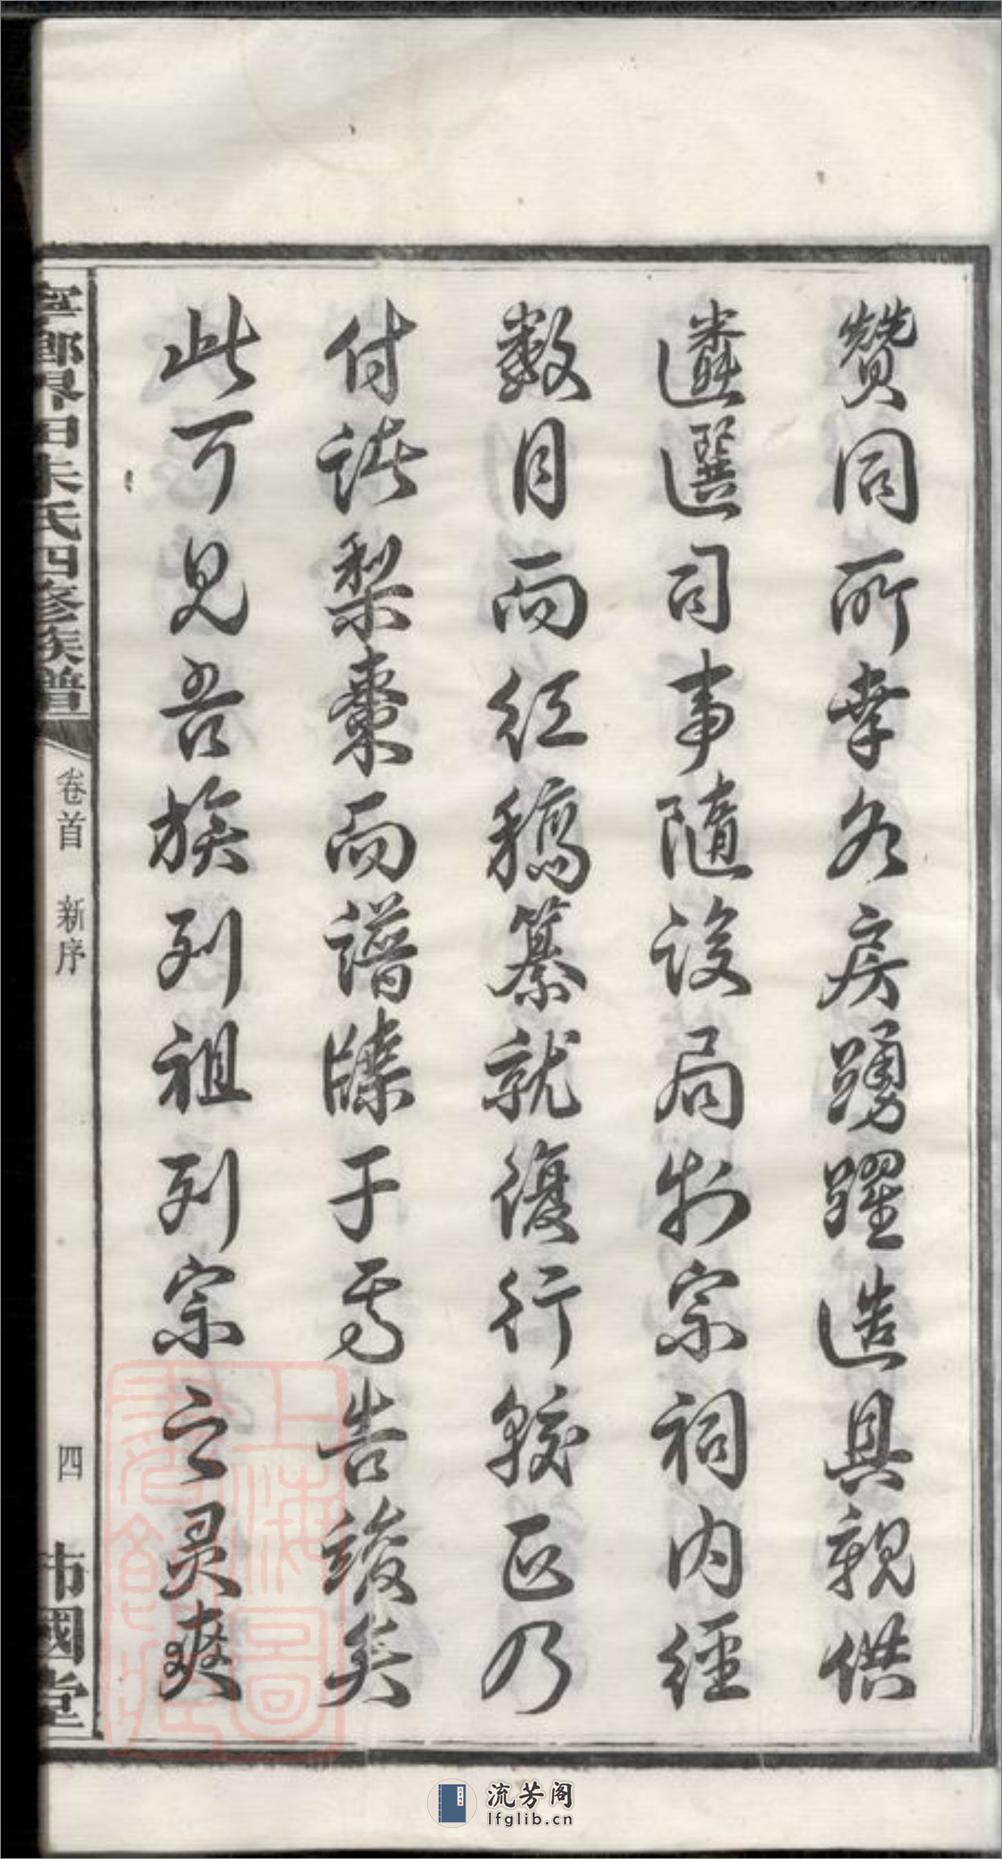 贊同所幸各房踴躍造具親供
遴選司事隨設局於宗祠内經
數月而紅稿纂就復行校正乃
付諸梨棗而譜牒于焉告竣矣
此可見吾族列祖列宗之灵爽
寧鄉界田朱氏四修族譜
卷首 新序
四
沛國堂
上海圖書館藏
流芳阁
lfglib.cn